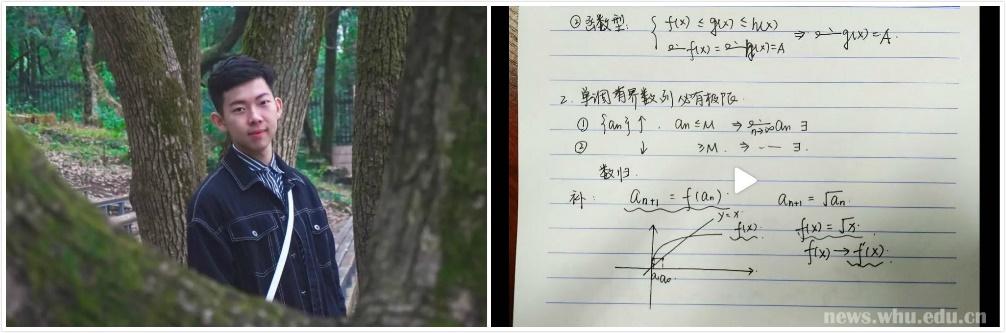 ② 函数型: { f(x) ≤ g(x) ≤ h(x)
lim f(x) = lim h(x) = A ⇒ lim g(x) = A.
2. 单调有界数列必有极限.
① {an} ↑ . an ≤ M ⇒ lim n→∞ an ∃
② ↓ ≥ M. ⇒ ·-- ∃.
数归.
补: an+1 = f(an) an+1 = √an
y=x
f(x) f(x) = √x
f(x) → f'(x).
news.whu.edu.cn